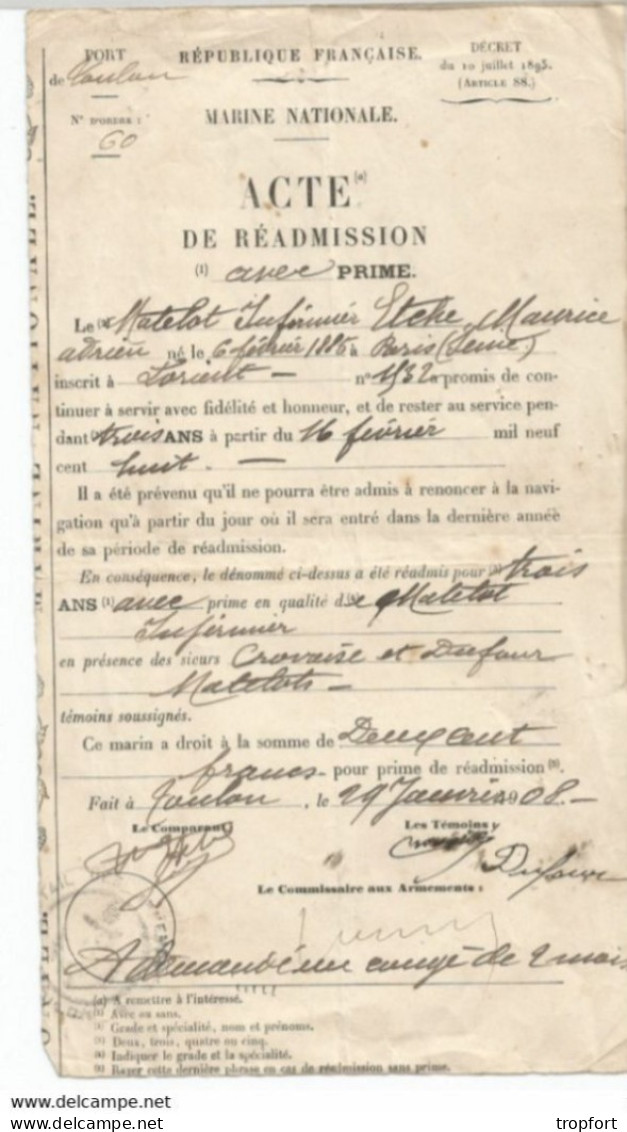 PORT
de Toulon
RÉPUBLIQUE FRANÇAISE.
DÉCRET
du 10 juillet 1895.
(ARTICLE 88.)
N° D'ORDRE :
60
MARINE NATIONALE.
ACTE (a)
DE RÉADMISSION
(1) avec PRIME.
Le Matelot Infirmier Etche, Maurice
adrien né le 6 février 1886 à Paris (Seine)
inscrit à Lorient — n° 1532 a promis de con-
tinuer à servir avec fidélité et honneur, et de rester au service pen-
dant trois ANS à partir du 16 février mil neuf
cent huit. —
Il a été prévenu qu'il ne pourra être admis à renoncer à la navi-
gation qu'à partir du jour où il sera entré dans la dernière année
de sa période de réadmission.
En conséquence, le dénommé ci-dessus a été réadmis pour trois
ANS (1) avec prime en qualité de Matelot
Infirmier
en présence des sieurs Crovaise et Dufour
Matelots —
témoins soussignés.
Ce marin a droit à la somme de Deux cent
francs — pour prime de réadmission
Fait à Toulon, le 29 Janvier 1908. —
Le Comparant
Les Témoins
Dufour
Le Commissaire aux Armements :
A demandé un congé de 2 mois
(a) A remettre à l'intéressé.
Avec ou sans.
Grade et spécialité, nom et prénoms.
Deux, trois, quatre ou cinq.
Indiquer le grade et la spécialité.
Rayer cette dernière phrase en cas de réadmission sans prime.
MARINE NATIONALE
http://www.delcampe.net
tropfort